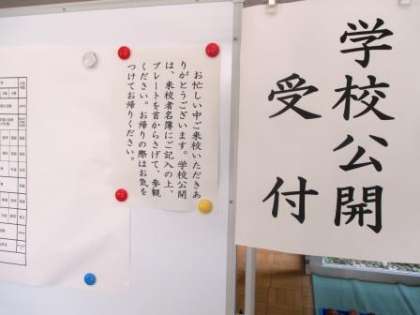 学校公開
受付
お忙しい中ご来校いただきあ
りがとうございます。学校公開
は、来校者名簿にご記入の上、
プレートを首からさげて、参観
ください。お帰りの際はお気を
つけてお帰りください。